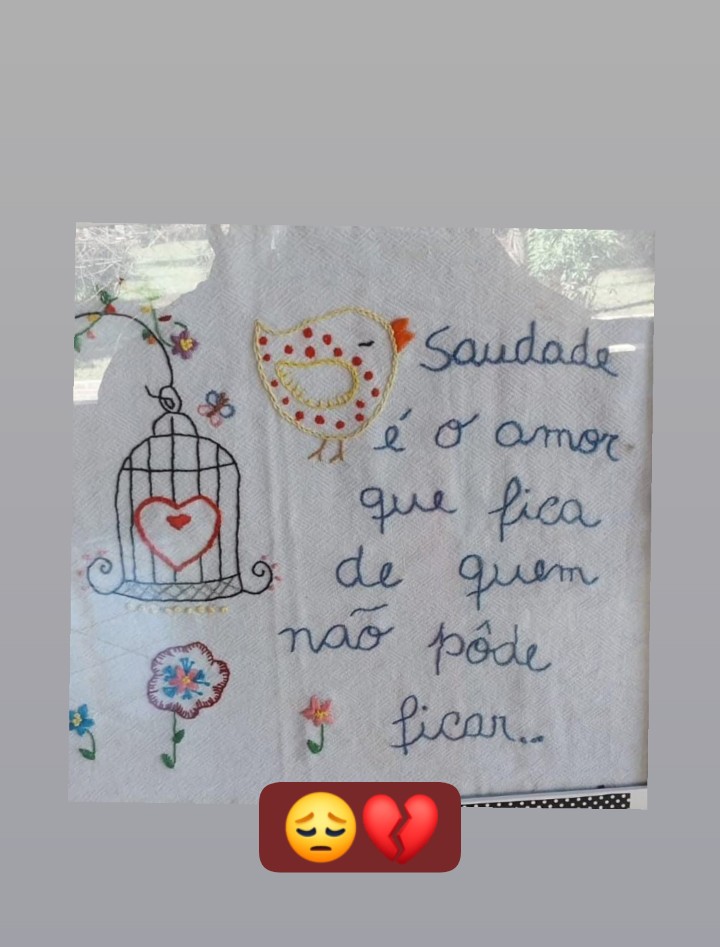 Saudade
é o amor
que fica
de quem
não pôde
ficar...
😔💔